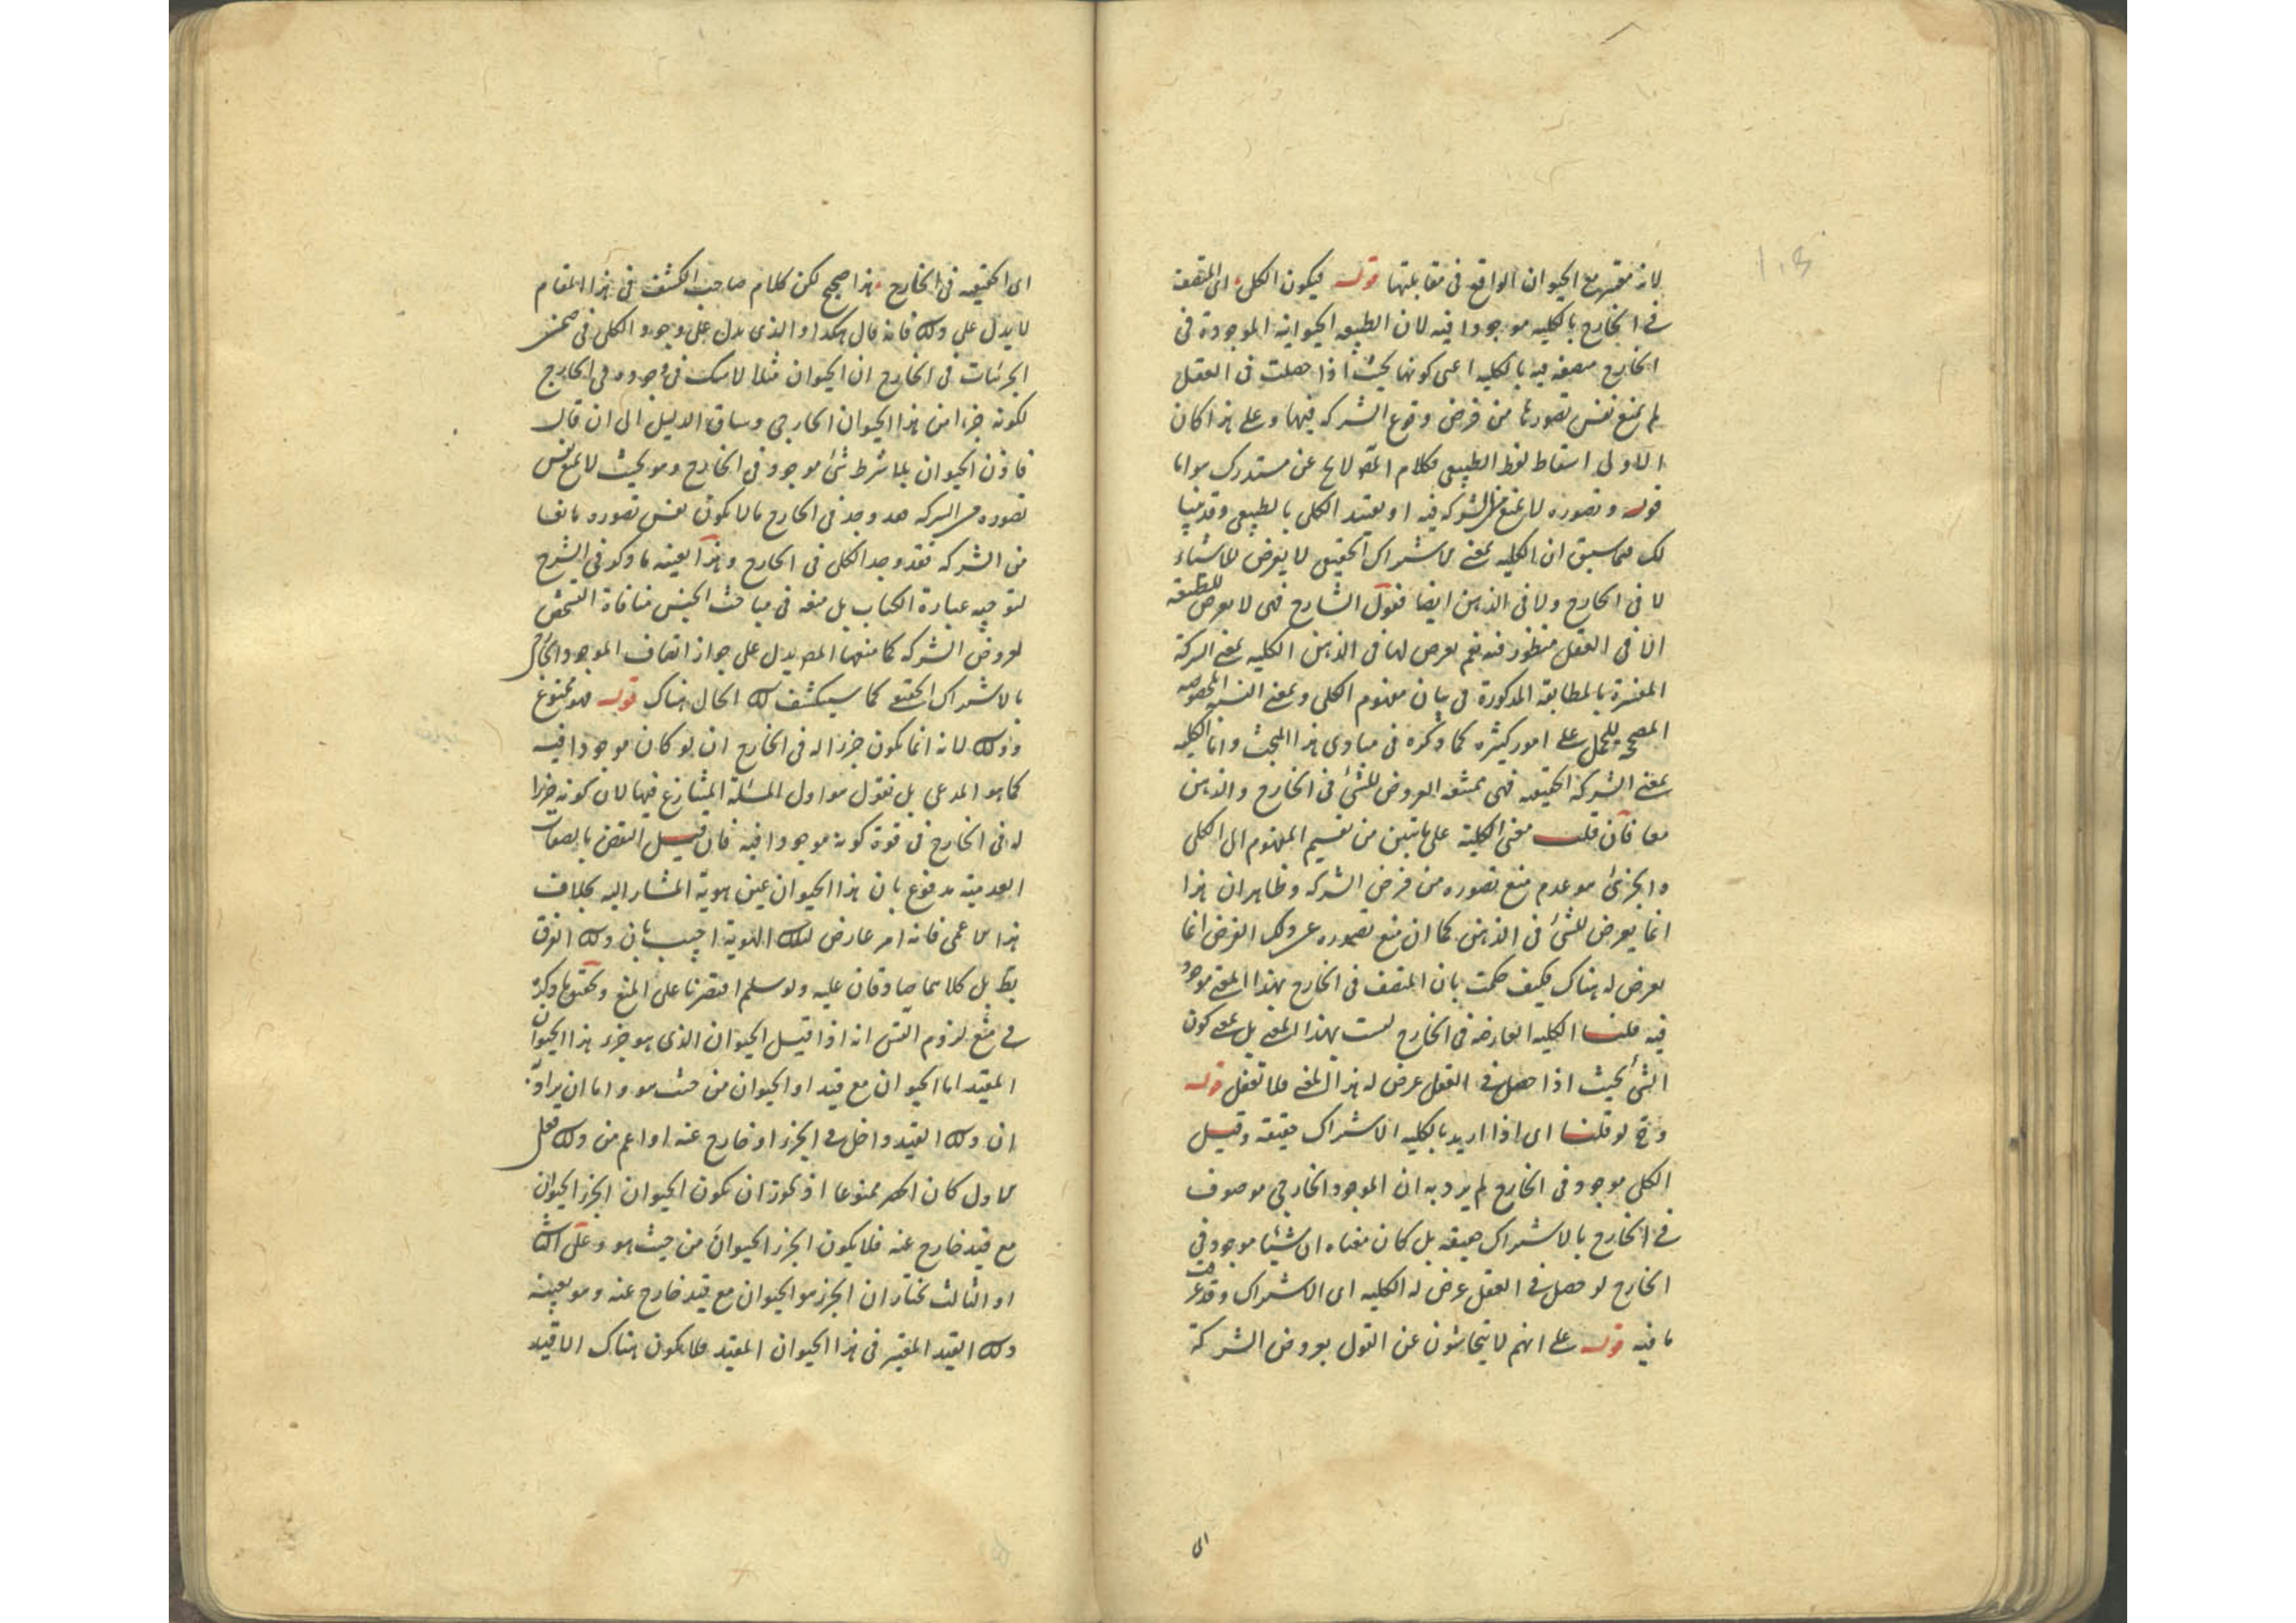 لانه مقسم مع الحيوان الواقع فى مقابلتها قوله فيكون الكلى اى المتصف
فى الخارج بالكليه موجودا فيه لان الطبيعه الحيوانيه الموجودة فى
الخارج متصفه فيه بالكليه اعنى كونها بحيث اذا حصلت فى العقل
لم يمنع نفس تصورها من فرض وقوع الشركه فيها وعلى هذا كان
الاولى اسقاط لفظ الطبيعى فكلام المص لا يخ عن مستدرك هو اما
قوله وتصوره لا يمنع عن الشركه فيه او تقييد الكلى بالطبيعى وقد بينا
لك فيما سبق ان الكليه بمعنى الاشتراك الحقيقى لا يعرض للاشياء
لا فى الخارج ولا فى الذهن ايضا فقول الشارح فهى لا يعرض للطبيعة
الا فى العقل منظور فيه نعم يعرض لها فى الذهن الكليه بمعنى الشركة
المفسرة بالمطابقة المذكورة فى بيان مفهوم الكلى وبمعنى النسبة المخصوصه
المصححة للحمل على امور كثيره كما ذكره فى مبادى هذا المبحث واما الكليه
بمعنى الشركة الحقيقه فهى ممتنعه العروض للشئ فى الخارج والذهن
معا فان قلت معنى الكلية على ما تبين من تقسيم المفهوم الى الكلى
والجزئ هو عدم منع تصوره من فرض الشركه وظاهر ان هذا
انما يعرض للشئ فى الذهن كما ان منع تصوره عن ذلك الفرض انما
يعرض له هناك فكيف حكمت بان المتصف فى الخارج بهذا المعنى موجود
فيه قلنا الكليه العارضه فى الخارج ليست بهذا المعنى بل بمعنى كون
الشئ بحيث اذا حصل فى العقل عرض له هذا المعنى فلا تغفل قوله
وح لو قلنا اى اذا اريد بالكليه الاشتراك حقيقه وقيل
الكلى موجود فى الخارج لم يرد به ان الموجود الخارجى موصوف
فى الخارج بالاشتراك حقيقه بل كان معناه ان شيئا موجودا فى
الخارج لو حصل فى العقل عرض له الكليه اى الاشتراك وقد عرفت
ما فيه قوله على انهم لا يتحاشون عن القول بعروض الشركة
اى
اى الحقيقه فى الخارج هذا صحيح لكن كلام صاحب الكشف فى هذا المقام
لا يدل على ذلك فانه قال هكذا والذى يدل على وجود الكلى فى ضمن
الجزئيات فى الخارج ان الحيوان مثلا لا شك فى وجوده فى الخارج
لكونه جزءا من هذا الحيوان الخارجى وساق الدليل الى ان قال
فاذن الحيوان بلا شرط شئ موجود فى الخارج وهو بحيث لا يمنع نفس
تصوره من الشركه فقد وجد فى الخارج ما لا يكون نفس تصوره مانعا
من الشركه فقد وجد الكلى فى الخارج وهذا بعينه ما ذكر فى الشرح
لتوجيه عبارة الكتاب بل منعه فى مباحث الجنس منافاة التشخص
لعروض الشركه كما منهما المص يدل على جواز اتصاف الموجود الخارجى
بالاشتراك الحقيقى كما سيكشف لك الحال هناك قوله فهو ممنوع
وذلك لانه انما يكون جزءا له فى الخارج ان لو كان موجودا فيه
كما هو المدعى بل نقول هو اول المسئلة المتنازع فيها لان كونه جزءا
له فى الخارج فى قوة كونه موجودا فيه فان قيل النقض بالصفات
العدمية مدفوع بان هذا الحيوان عين هوية المشار اليه بخلاف
هذا الاعمى فانه امر عارض لتلك الهوية اجيب بان ذلك الفرق
بط بل كلاهما صادقان عليه ولو سلم اقتصرنا على المنع وتحقيق ما ذكره
فى منع لزوم التس انه اذا قيل الحيوان الذى هو جزء هذا الحيوان
المقيد اما الحيوان مع قيد او الحيوان من حيث هو واما ان يراد به
ان ذلك القيد داخل فى الجزء او خارج عنه او اعم من ذلك فعلى
الاول كان الحصر ممنوعا اذ يجوز ان يكون الحيوان الجزء الحيوان
مع قيد خارج عنه فلا يكون الجزء الحيوان من حيث هو وعلى الثانى
او الثالث نختار ان الجزء هو الحيوان مع قيد خارج عنه وهو بعينه
ذلك القيد المعتبر فى هذا الحيوان المقيد فلا يكون هناك الا قيد